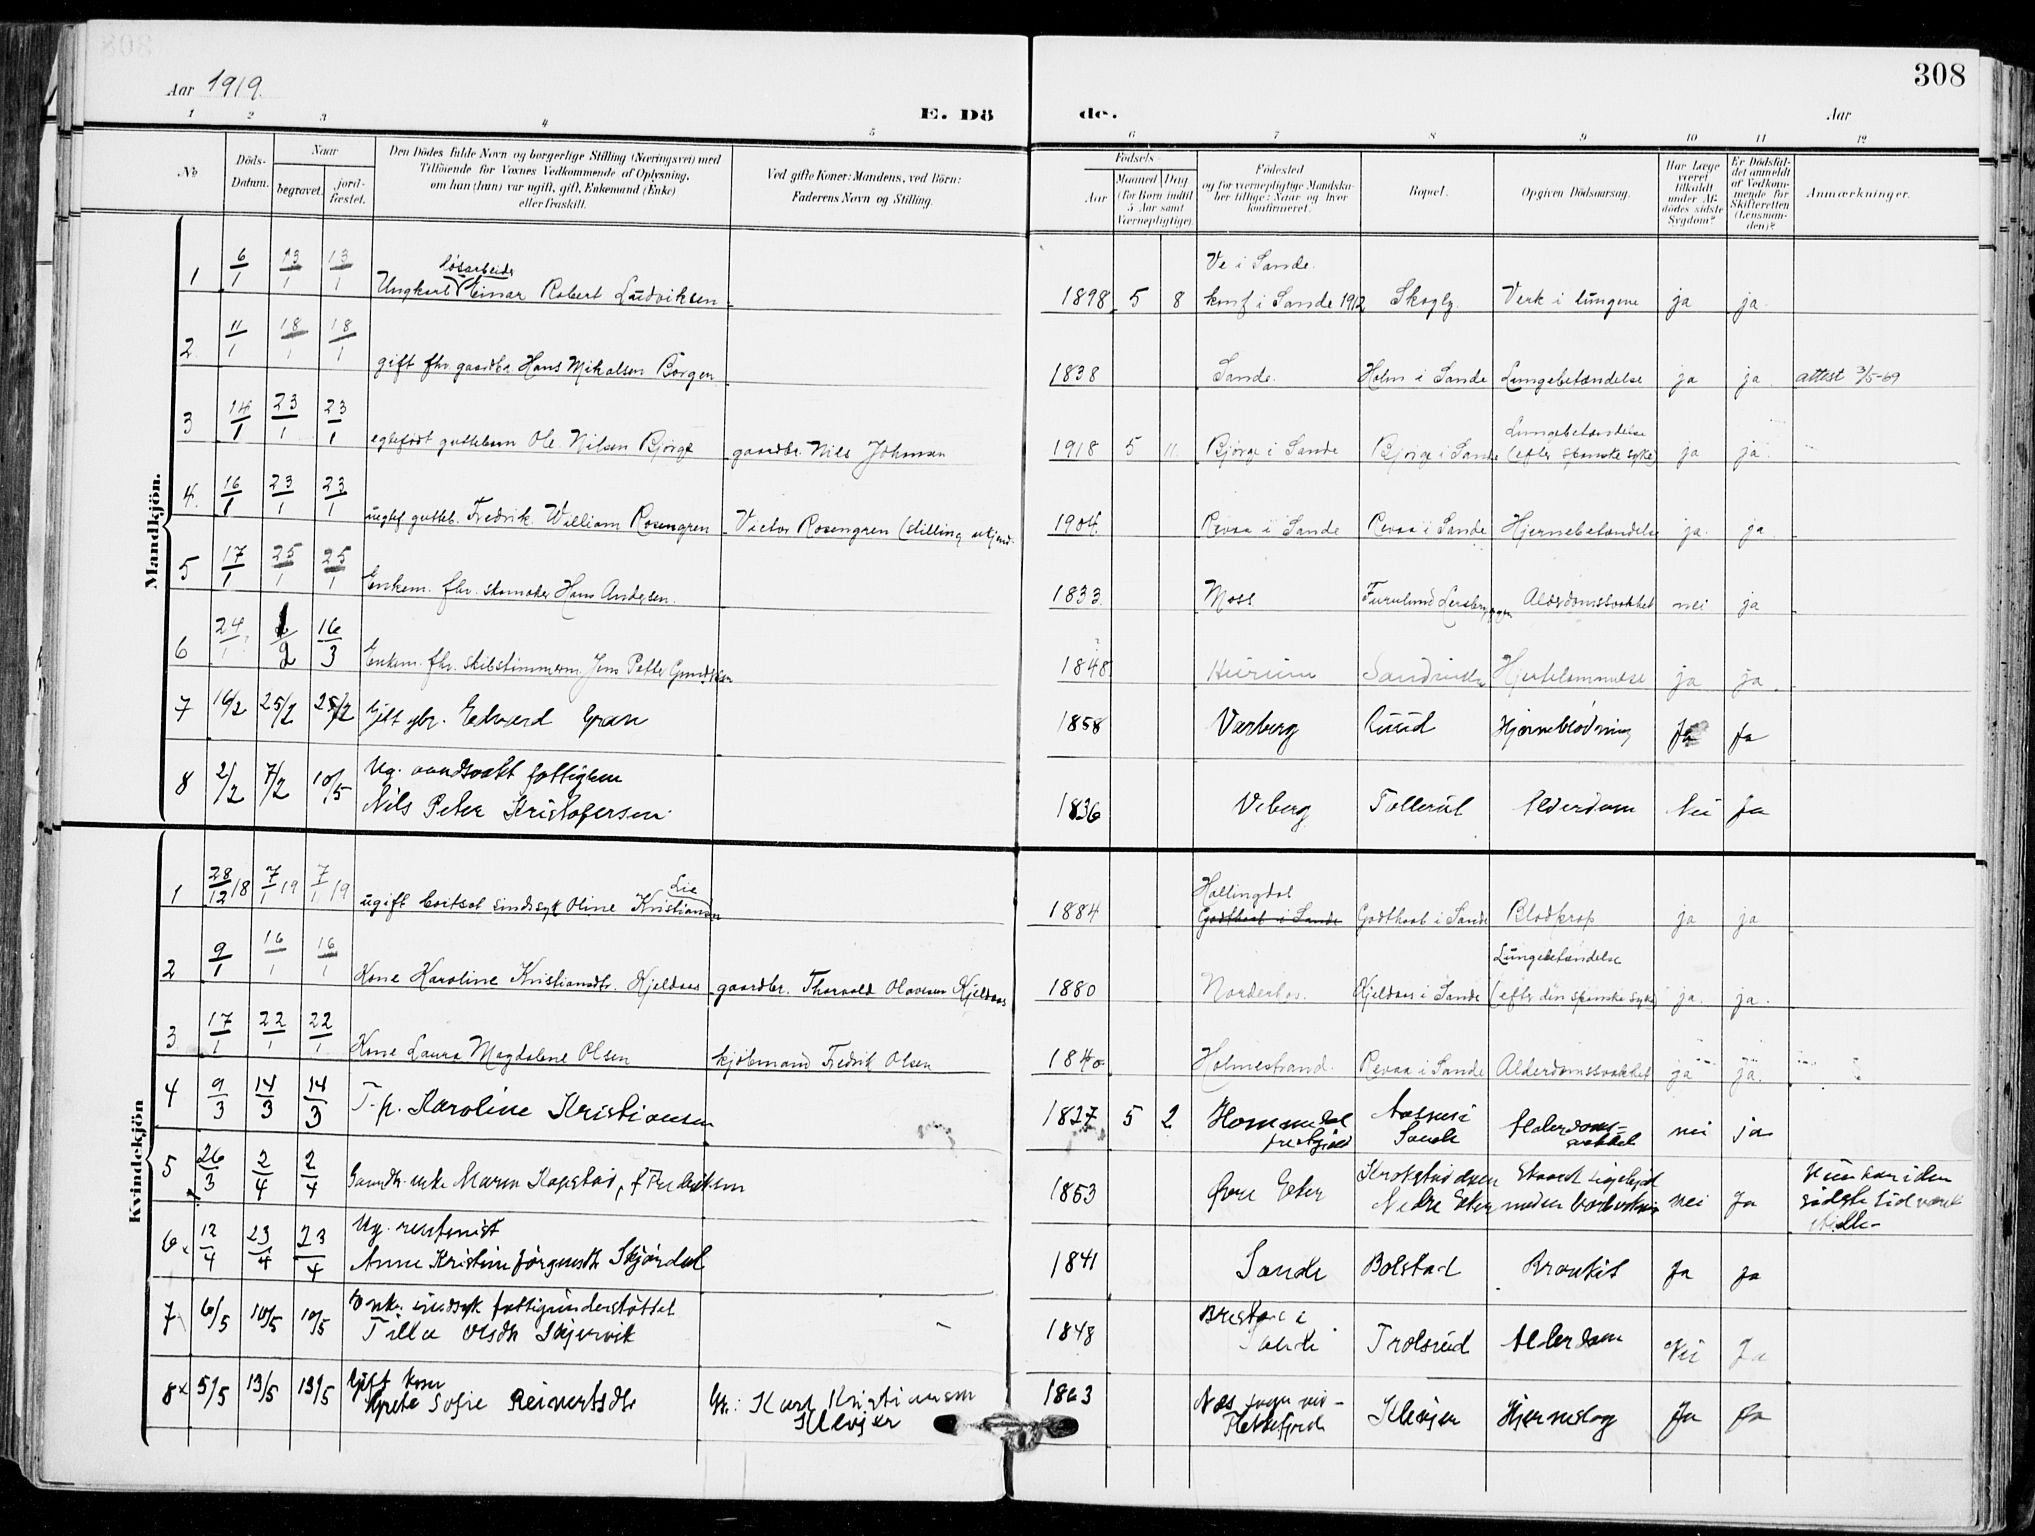 308
Aar 1919.
E. Dö de.
Aar
1 2 3 4 5 6 7 8 9 10 11 12
No
Döds-Datum.
Naar
begravet.
jord-fæstet.
Den Dödes fulde Navn og borgerlige Stilling (Næringsvei) med
Tilföiende for Voxnes Vedkommende af Oplysning,
om han (hun) var ugift, gift, Enkemand (Enke)
eller fraskilt.
Ved gifte Koner: Mandens, ved Börn:
Faderens Navn og Stilling.
Födsels-
Aar
Maaned Dag
(for Børn indtil
5 Aar samt
Værnepligtige)
Födested
og for værnepligtige Mandska-
ber tillige: Naar og hvor
konfirmeret.
Bopæl.
Opgiven Dödsaarsag.
Har Læge
været
tilkaldt
under Af-
dödes sidste
Sygdom?
Er Dödsfal-
det anmeldt
af Vedkom-
mende for
Skifteretten
(Lensman-
den)?
Anmærkninger.
Mandkjön.
1 6/1 13/1 13/1 Ungkarl løsarbeider Einar Robert Ludviksen 1898 5 8 Ve i Sande. konf i Sande 1912 Skogly. Verk i lungene ja ja
2. 11/1 18/1 18/1 gift fhv. gaardbr. Hans Mikalsen Borgen 1838 Sande. Holm i Sande Lungebetændelse ja ja attest 3/5-69
3 14/1 23/1 23/1 egtefødt guttebarn Ole Nilsen Bjørge gaardbr. Nils Johnsen 1918 5 11. Bjørge i Sande Bjørge i Sande Lungebetændelse (efter spanske syke) ja ja
4. 16/1 23/1 23/1 uegtef gutteb. Fredrik William Rosengren Victor Rosengren (stilling ukjend. 1904. Revaa i Sande Revaa i Sande Hjernebetændelse ja. ja
5 17/1 25/1 25/1 Enkem. fhv. skomaker Hans Andersen. 1833 Moss Furulund Alderdomssvakhet nei ja
6 24/1 1/2 16/3 Enkem. fhv. skibstimmerm. Jens Petter 1848 Hurum Sandviken Hjertelammelse ja ja
7 16/2 25/2 25/2 Gift gbr. Edvard Gran 1858 Varberg Ruud Hjerneblødning Ja Ja
8 2/2 7/2 10/5 Ug. aandsvakt fattiglem
Nils Peter Kristofersen 1836 Veberg Tollerud Alderdom Nei Ja
Kvindekjön
1 28/12 18 7/1 19 7/1 19 ugift bositset sindssyk Oline Kristiansen Lie 1884 Hallingdal Godthaab i Sande Godthaab i Sande Blodprop ja ja
2 9/1 16/1 16/1 Kone Karoline Kristiansdtr. Kjeldaas gaardbr. Thorvald Olavesen Kjeldaas 1880 Norderhov. Kjeldaas i Sande Lungebetændelse (efter den spanske syke) ja. ja.
3 17/1 22/1 22/1 Kone Laura Magdalene Olsen kjøbmand Fredrik Olsen 1840 Holmestrand. Revaa i Sande Alderdomssvakhet ja ja.
4 9/3 14/3 14/3 T.p. Karoline Kristiansen 1827 5 2 Hommedal prestgjeld Sande Alderdoms-svakhet nei ja
5 26/3 2/4 2/4 Gaardbr. enke Maren Kopstad, f Fredriksen 1853 Øvre Eker Krokstadelven Nedre Eker nei Ja Hun har i den
sidste tid været
6. 12/4 23/4 23/4 Ug. rentenist
Anne Kristine Jørgensdtr Skjørdal 1841 Sande Bolstad Bronkit Ja Ja
7 6/5 10/5 10/5 Enke. sindsyk fattigunderstøttet
Tilla Olsdtr Skjervik 1848 Sande Trolsrud Alderdom Nei Ja
8 5/5 13/5 13/5 Gift kone
Grete Sofie Reinertsdtr Gbr.: Karl Kristiansen
Klevjer 1863 Nes sogn ved
Flekkefjord Klevjer Hjerneslag Ja Ja